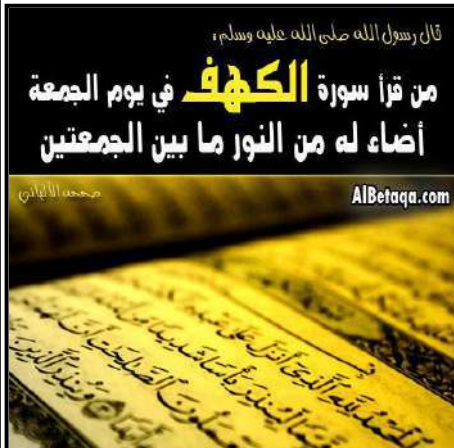 قال رسول الله صلى الله عليه وسلم:
من قرأ سورة الكهف في يوم الجمعة
أضاء له من النور ما بين الجمعتين
صححه الألباني
AlBetaqa.com
الحمد لله الذي أنزل على عبده
بأسا شديدا من
يعملون الصالحات أن لهم
وينذر الذين